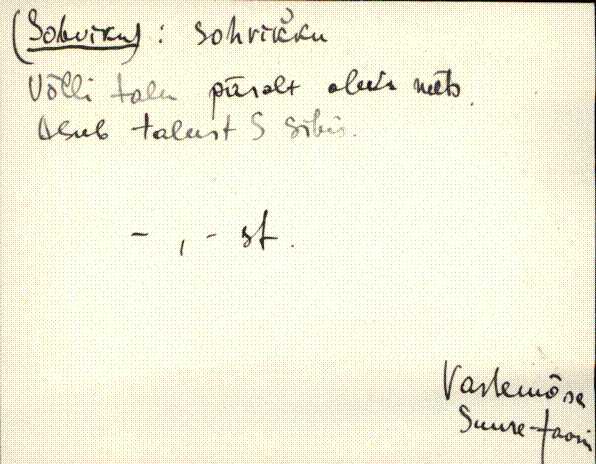 (Sohviku) : sohvik̆ku
Võlli talu piiralt olev mets.
Asub talust S sihis.
- , - st.
Vastemõisa
Suure-Jaani